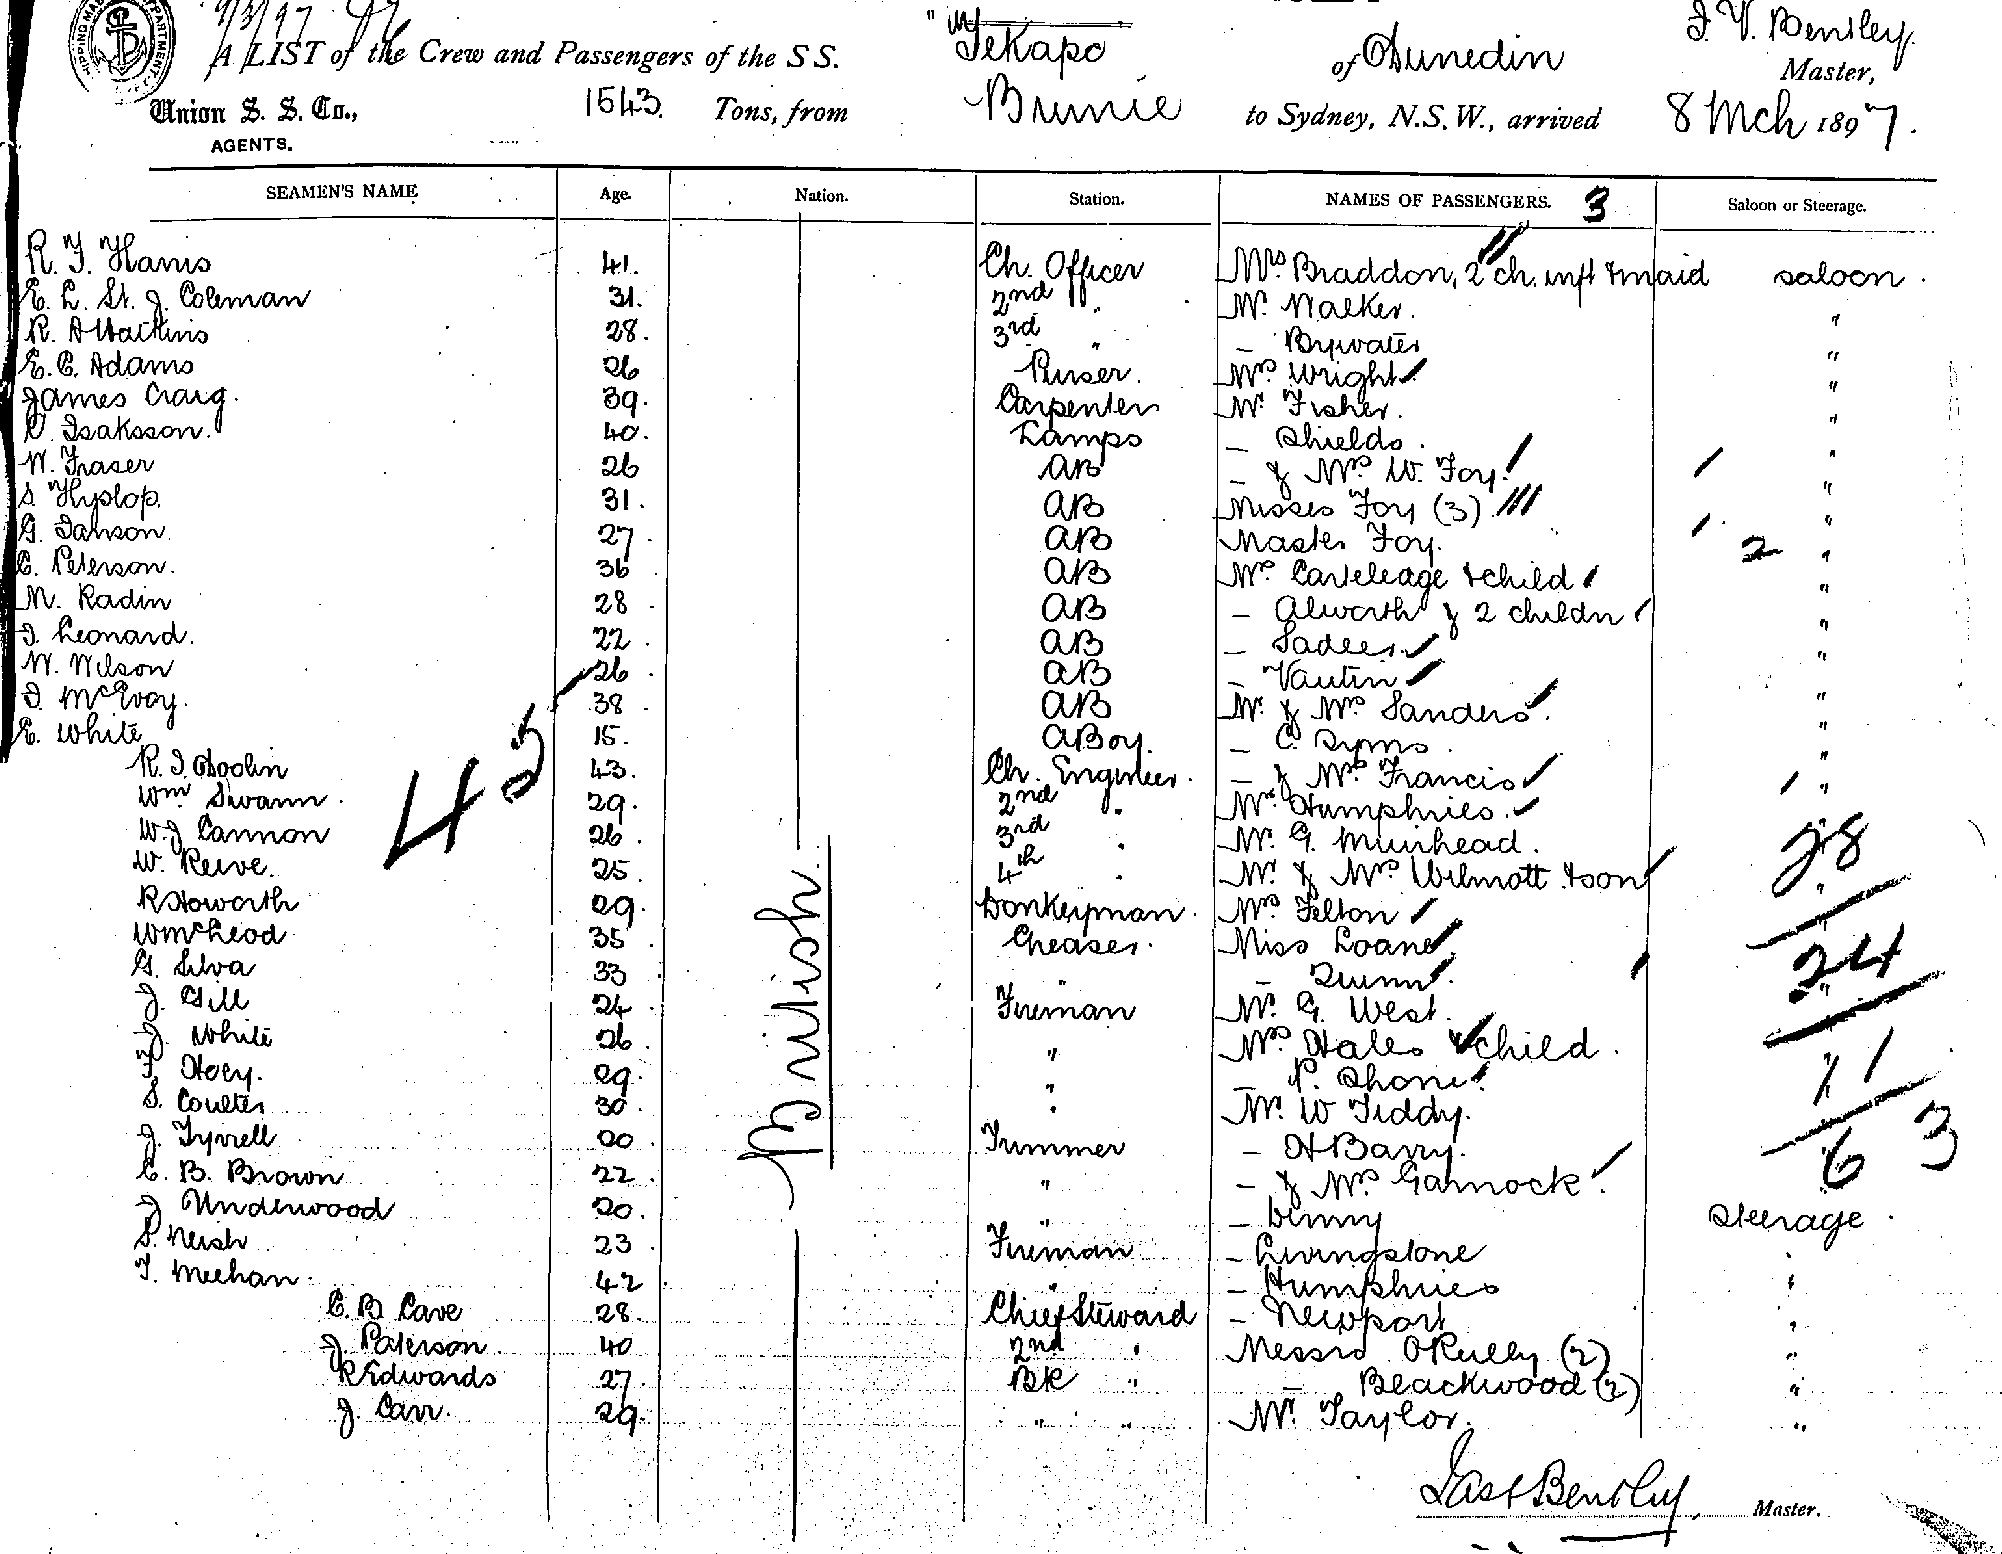 9/3/97
A LIST of the Crew and Passengers of the S S. "Tekapo of Dunedin J. V. Bentley. Master,
Union S. S. Co., 1543. Tons, from Burnie to Sydney, N.S.W., arrived 8 Mch 1897.
AGENTS.
SEAMEN'S NAME Age. Nation. Station. NAMES OF PASSENGERS. 3 Saloon or Steerage.
R. F. Harris 41. Ch. Officer Mrs Braddon, 2 ch. inft & maid saloon.
E. L. St. J. Coleman 31. 2nd " Mr. Walker. "
R. A Watkins 28. 3rd " — Bywater "
E. C. Adams 26 Purser. Mrs Wright "
James Craig. 39. Carpenter Mr Fisher. "
Isaksson. 40. Lamps — Shields. "
W. Fraser 26 AB — & Mrs W. Foy. "
S. Hyslop. 31. AB Misses Foy (3) "
G. Janson. 27. AB Master Foy. 2 "
C. Peterson. 36 AB Mrs Carteleage & child "
M. Radin 28. AB — Alworth & 2 childn "
J. Leonard. 22. AB — Sadler "
W. Wilson 26. AB — Vautin "
J. McEvoy. 38. AB Mr. & Mrs Sanders. "
E. White 15. ABoy. — C. Syms. "
R. J. Hoolin 43. Ch. Engineer. — & Mrs Francis "
Wm Swann. 29. 2nd " Mrs Humphries. "
W. J Cannon 26. 3rd " Mr. G. Muirhead. 28
W. Reeve. 25. 4th " Mr. & Mrs Wilmott & son "
R Howorth 29. Donkeyman. Mrs Felton
Wm McLeod 35. Greaser. Miss Loane 24
G. Silva 33 " — Quinn. "
J. Gill 24 Fireman Mr. G. West.
J. White 26 " Mrs Hales & child. 11
F. Hoey. 29. " — P. Shone
S. Coulter 30. " Mr. W Tiddy.
J. Tyrrell 20. Trimmer — H Barry. 6 3
C. B. Brown 22. " — & Mrs Garnock.
J. Underwood 20. " — Denny Steerage.
S. Neish 23 Fireman — Livingstone "
T. Meehan. 42 " — Humphries "
C. B Cave 28. Chief Steward — Newport "
J. Paterson. 40 2nd " Messrs O'Reilly (2) "
R Edwards 27 BK " — Blackwood (2) "
J. Carr. 29. " " Mr. Taylor. "
45
British.
Jas V Bentley Master.